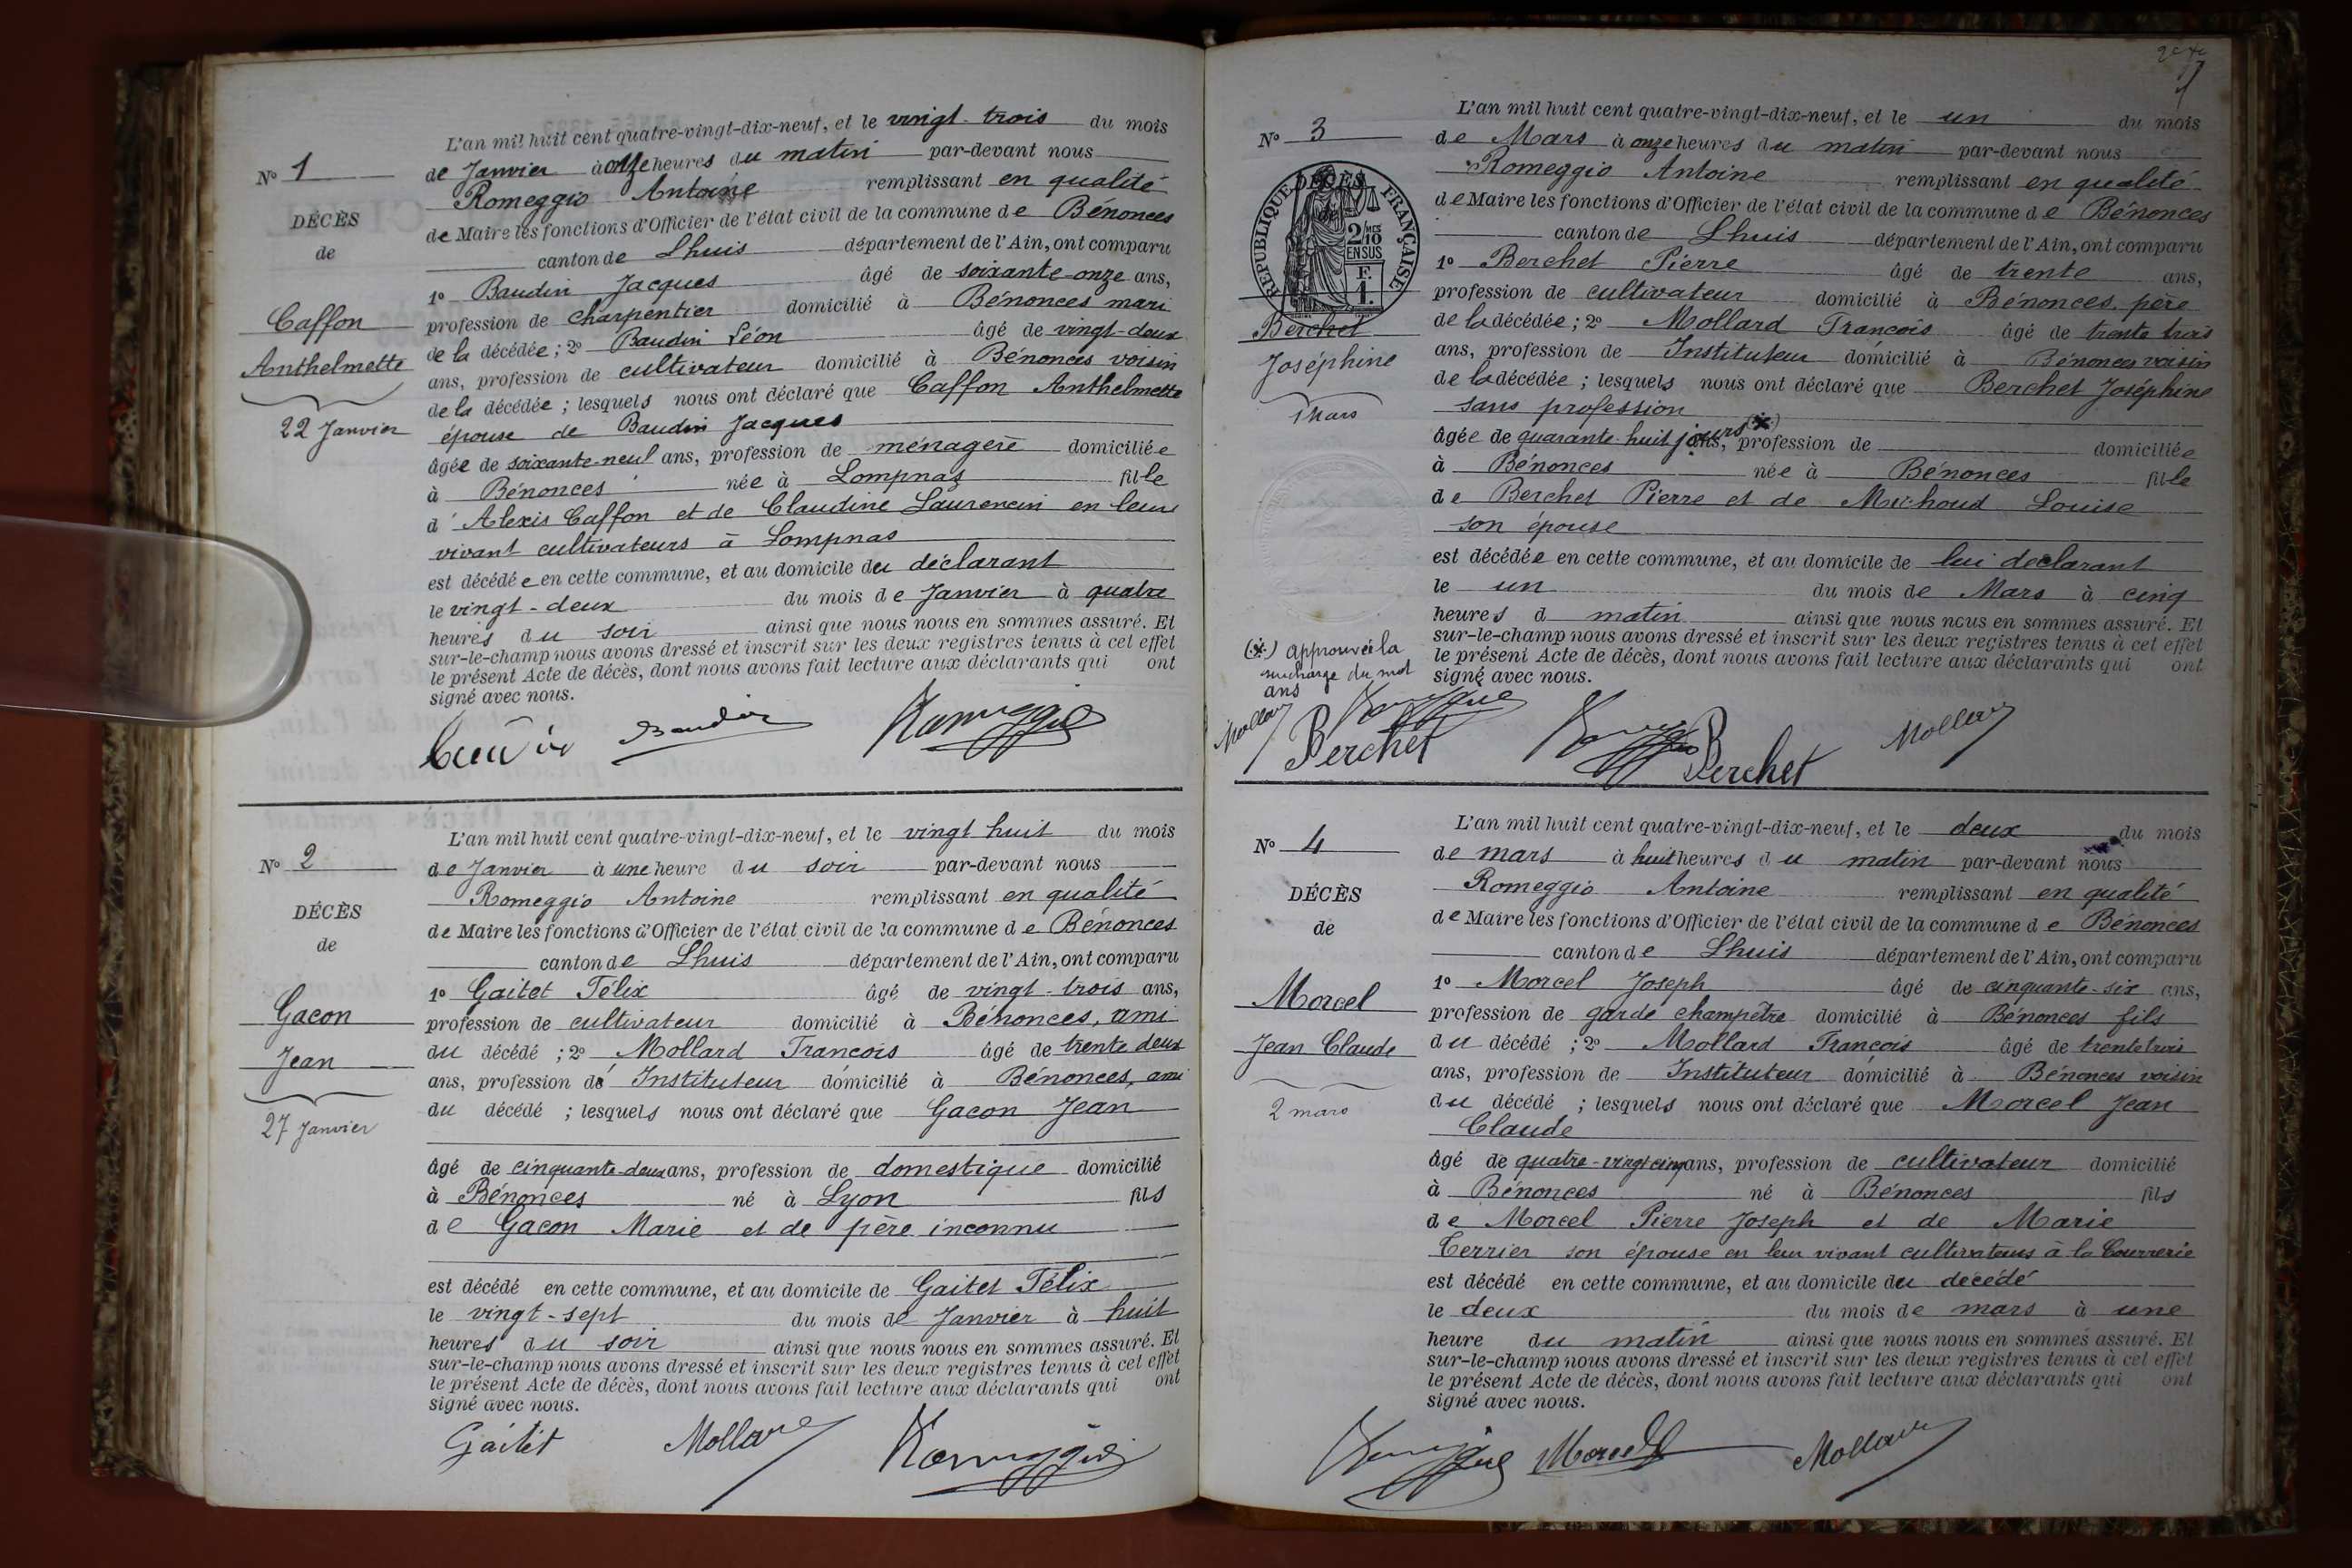 N° 1
DÉCÈS
de
Caffon
Anthelmette
22 Janvier
L'an mil huit cent quatre-vingt-dix-neuf, et le vingt-trois du mois
de Janvier à onze heures du matin par-devant nous
Romeggio Antoine remplissant en qualité
de Maire les fonctions d'Officier de l'état civil de la commune de Bénonces
canton de Lhuis département de l'Ain, ont comparu
1° Baudin Jacques âgé de soixante-onze ans,
profession de charpentier domicilié à Bénonces mari
de la décédée ; 2° Baudin Léon âgé de vingt-deux
ans, profession de cultivateur domicilié à Bénonces voisin
de la décédée ; lesquels nous ont déclaré que Caffon Anthelmette
épouse de Baudin Jacques
âgée de soixante-neuf ans, profession de ménagère domiciliée
à Bénonces née à Lompnas fille
d'Alexis Caffon et de Claudine Laurencin en leur
vivant cultivateurs à Lompnas
est décédée en cette commune, et au domicile du déclarant
le vingt-deux du mois de Janvier à quatre
heures du soir ainsi que nous nous en sommes assuré. Et
sur-le-champ nous avons dressé et inscrit sur les deux registres tenus à cet effet
le présent Acte de décès, dont nous avons fait lecture aux déclarants qui ont
signé avec nous.
Baudin Romeggio
N° 2
DÉCÈS
de
Gacon
Jean
27 Janvier
L'an mil huit cent quatre-vingt-dix-neuf, et le vingt huit du mois
de Janvier à une heure du soir par-devant nous
Romeggio Antoine remplissant en qualité
de Maire les fonctions d'Officier de l'état civil de la commune de Bénonces
canton de Lhuis département de l'Ain, ont comparu
1° Gaitet Félix âgé de vingt-trois ans,
profession de cultivateur domicilié à Bénonces, ami
du décédé ; 2° Mollard François âgé de trente deux
ans, profession de Instituteur domicilié à Bénonces, ami
du décédé ; lesquels nous ont déclaré que Gacon Jean
âgé de cinquante-deux ans, profession de domestique domicilié
à Bénonces né à Lyon fils
de Gacon Marie et de père inconnu
est décédé en cette commune, et au domicile de Gaitet Félix
le vingt-sept du mois de Janvier à huit
heures du soir ainsi que nous nous en sommes assuré. Et
sur-le-champ nous avons dressé et inscrit sur les deux registres tenus à cet effet
le présent Acte de décès, dont nous avons fait lecture aux déclarants qui ont
signé avec nous.
Gaitet Mollard Romeggio
N° 3
DÉCÈS
de
RÉPUBLIQUE FRANÇAISE
2/10 MES
EN SUS
F.
1.
Berchet
Joséphine
1 Mars
L'an mil huit cent quatre-vingt-dix-neuf, et le un du mois
de Mars à onze heures du matin par-devant nous
Romeggio Antoine remplissant en qualité
de Maire les fonctions d'Officier de l'état civil de la commune de Bénonces
canton de Lhuis département de l'Ain, ont comparu
1° Berchet Pierre âgé de trente ans,
profession de cultivateur domicilié à Bénonces, père
de la décédée ; 2° Mollard François âgé de trente trois
ans, profession de Instituteur domicilié à Bénonces voisin
de la décédée ; lesquels nous ont déclaré que Berchet Joséphine
sans profession
âgée de quarante-huit jours (x), profession de domiciliée
à Bénonces née à Bénonces fille
de Berchet Pierre et de Michoud Louise
son épouse
est décédée en cette commune, et au domicile de lui déclarant
le un du mois de Mars à cinq
heures d matin ainsi que nous nous en sommes assuré. Et
sur-le-champ nous avons dressé et inscrit sur les deux registres tenus à cet effet
le présent Acte de décès, dont nous avons fait lecture aux déclarants qui ont
signé avec nous.
(x) approuvé la
surcharge du mot
ans
Mollard Romeggio
Berchet Romeggio Berchet Mollard
N° 4
DÉCÈS
de
Morcel
Jean Claude
2 mars
L'an mil huit cent quatre-vingt-dix-neuf, et le deux du mois
de mars à huit heures du matin par-devant nous
Romeggio Antoine remplissant en qualité
de Maire les fonctions d'Officier de l'état civil de la commune de Bénonces
canton de Lhuis département de l'Ain, ont comparu
1° Morcel Joseph âgé de cinquante-six ans,
profession de garde champêtre domicilié à Bénonces fils
du décédé ; 2° Mollard François âgé de trente trois
ans, profession de Instituteur domicilié à Bénonces voisin
du décédé ; lesquels nous ont déclaré que Morcel Jean
Claude
âgé de quatre-vingt cinq ans, profession de cultivateur domicilié
à Bénonces né à Bénonces fils
de Morcel Pierre Joseph et de Marie
Terrier son épouse en leur vivant cultivateurs à la Courrerie
est décédé en cette commune, et au domicile du décédé
le deux du mois de mars à une
heure du matin ainsi que nous nous en sommes assuré. Et
sur-le-champ nous avons dressé et inscrit sur les deux registres tenus à cet effet
le présent Acte de décès, dont nous avons fait lecture aux déclarants qui ont
signé avec nous.
Romeggio Morcel Mollard